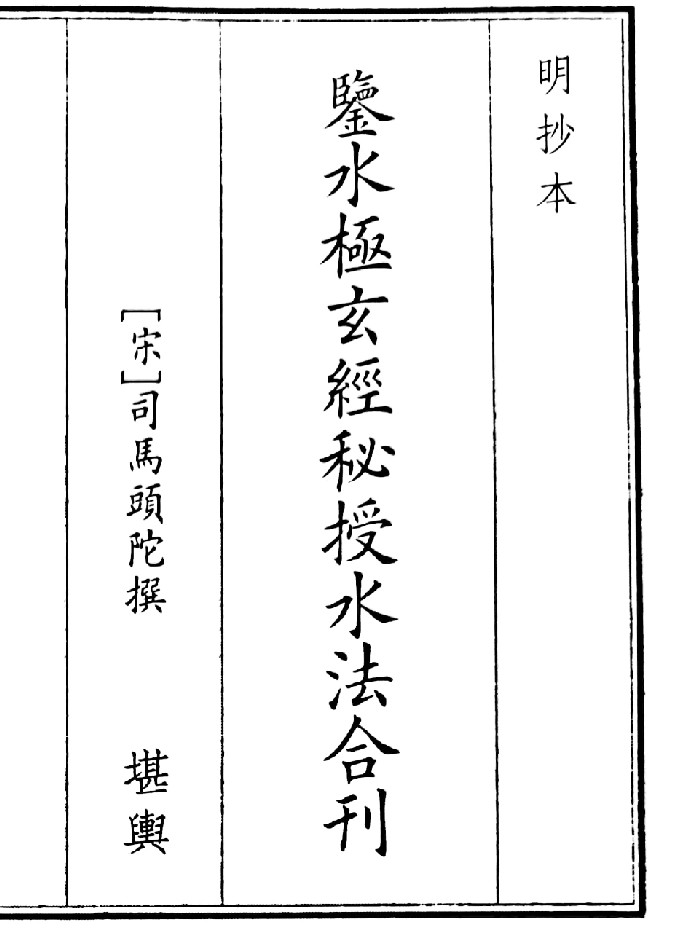 明抄本
鑒水極玄經秘授水法合刊
[宋]司馬頭陀撰 堪輿